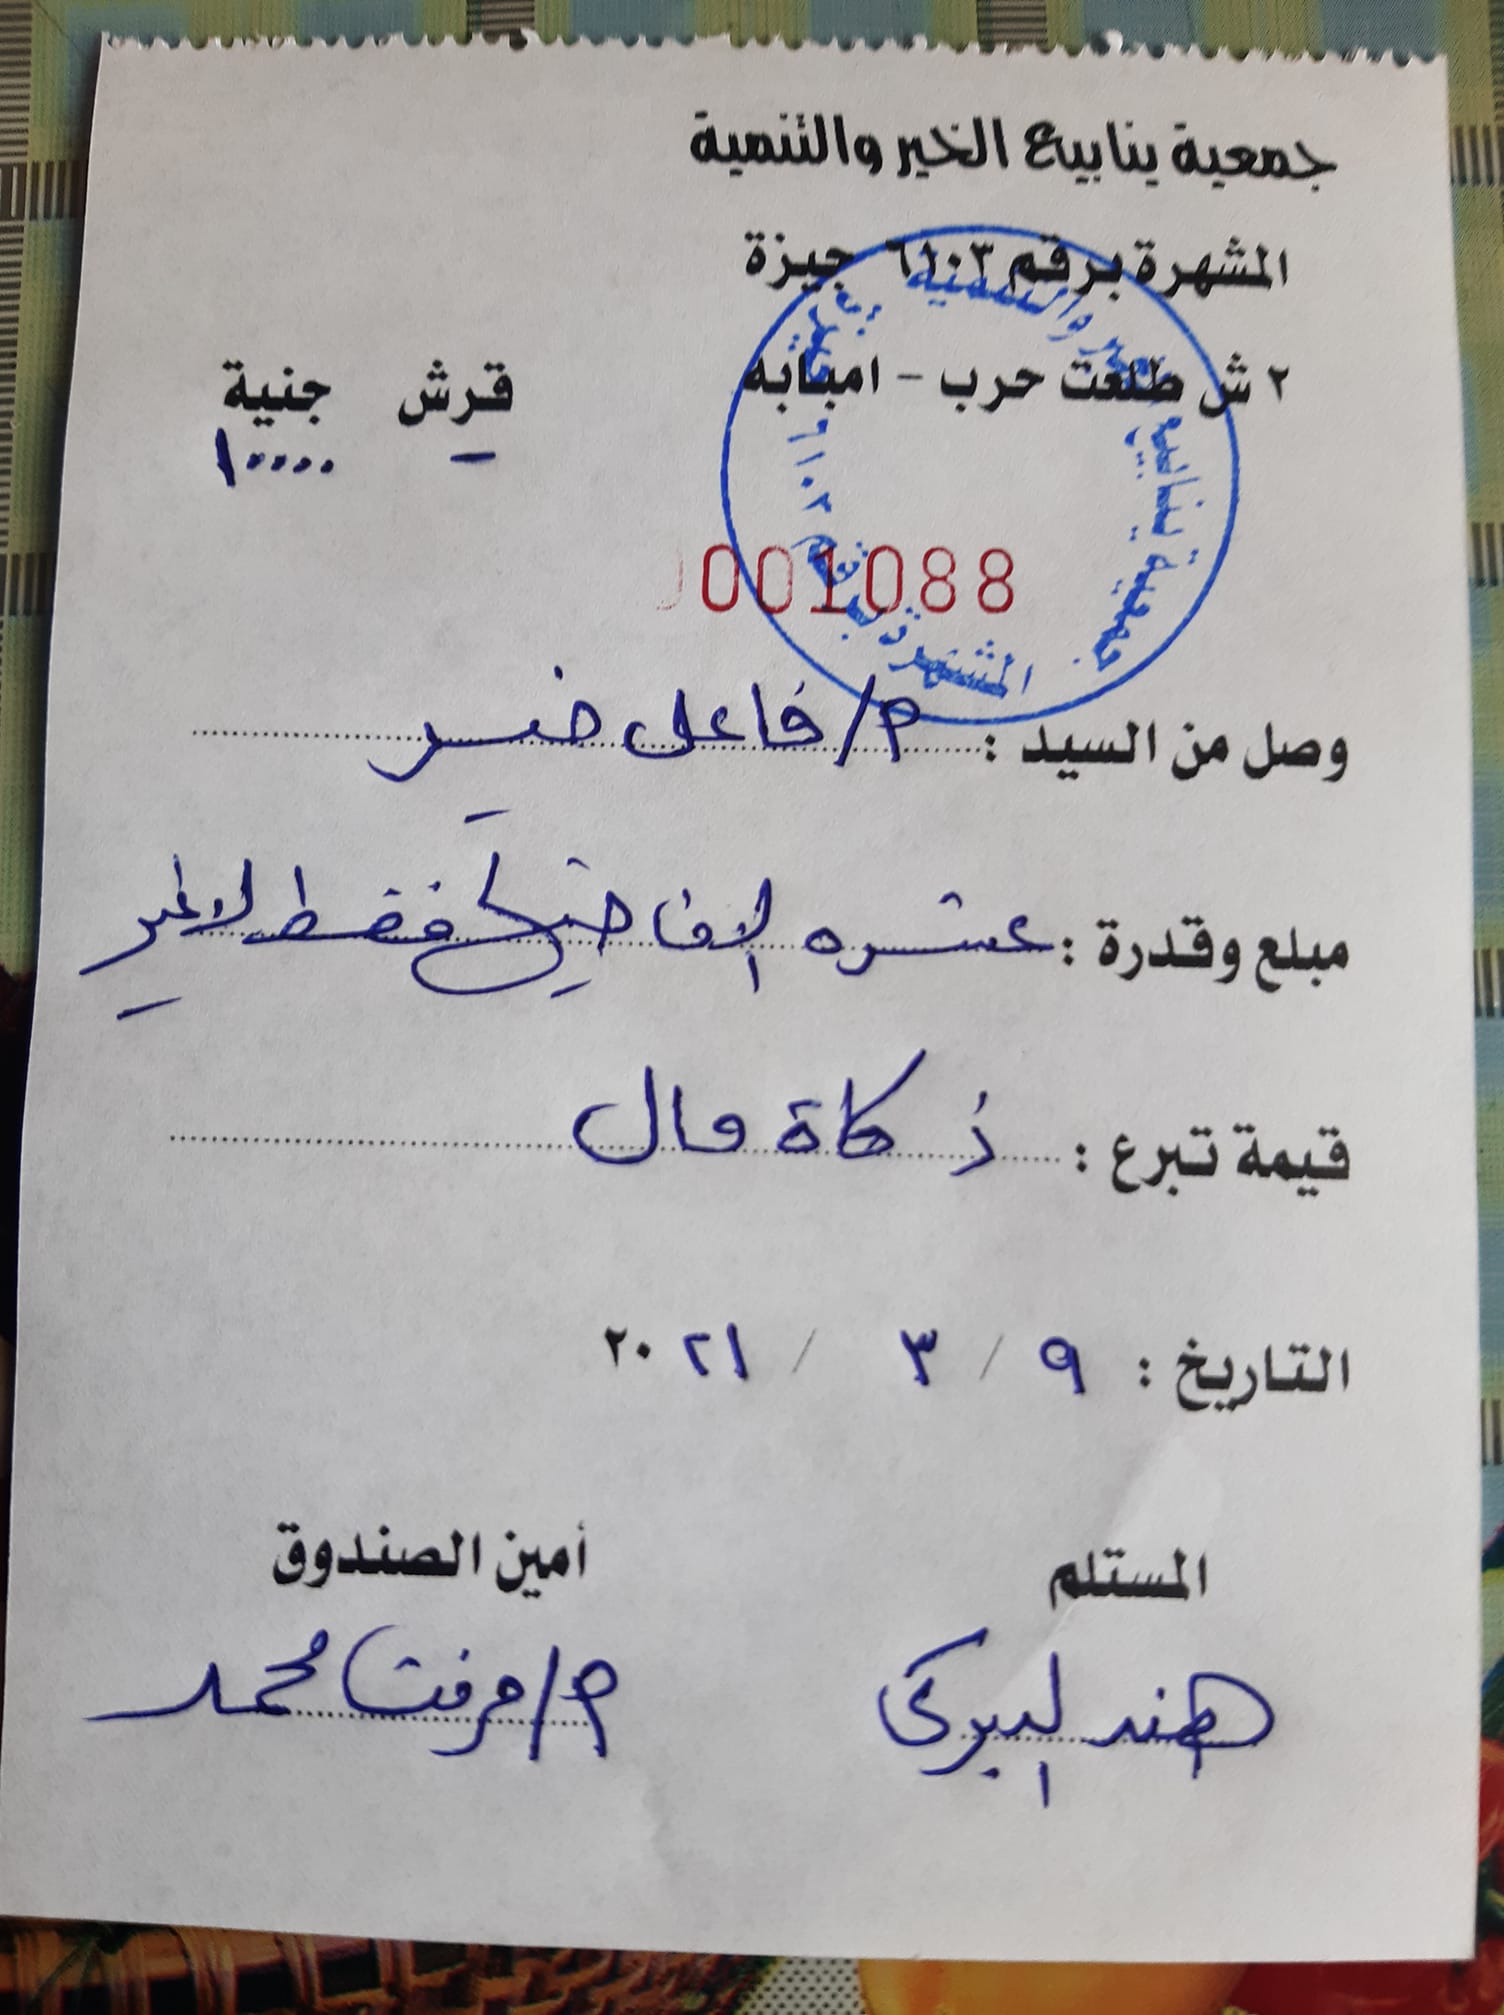 جمعية ينابيع الخير والتنمية
المشهرة برقم ٦١٠٣ جيزة
٢ ش طلعت حرب - امبابه
قرش جنية
- ١٠٠٠٠
001088
جمعية ينابيع الخير والتنمية بجيزة
المشهرة برقم ٦١٠٣
وصل من السيد : م/ فاعل خير
مبلع وقدرة : عشره الاف جنيها فقط لاغير
قيمة تبرع : زكاة مال
التاريخ : ٩ / ٣ / ٢٠٢١
المستلم أمين الصندوق
هند م/ مرفت محمد